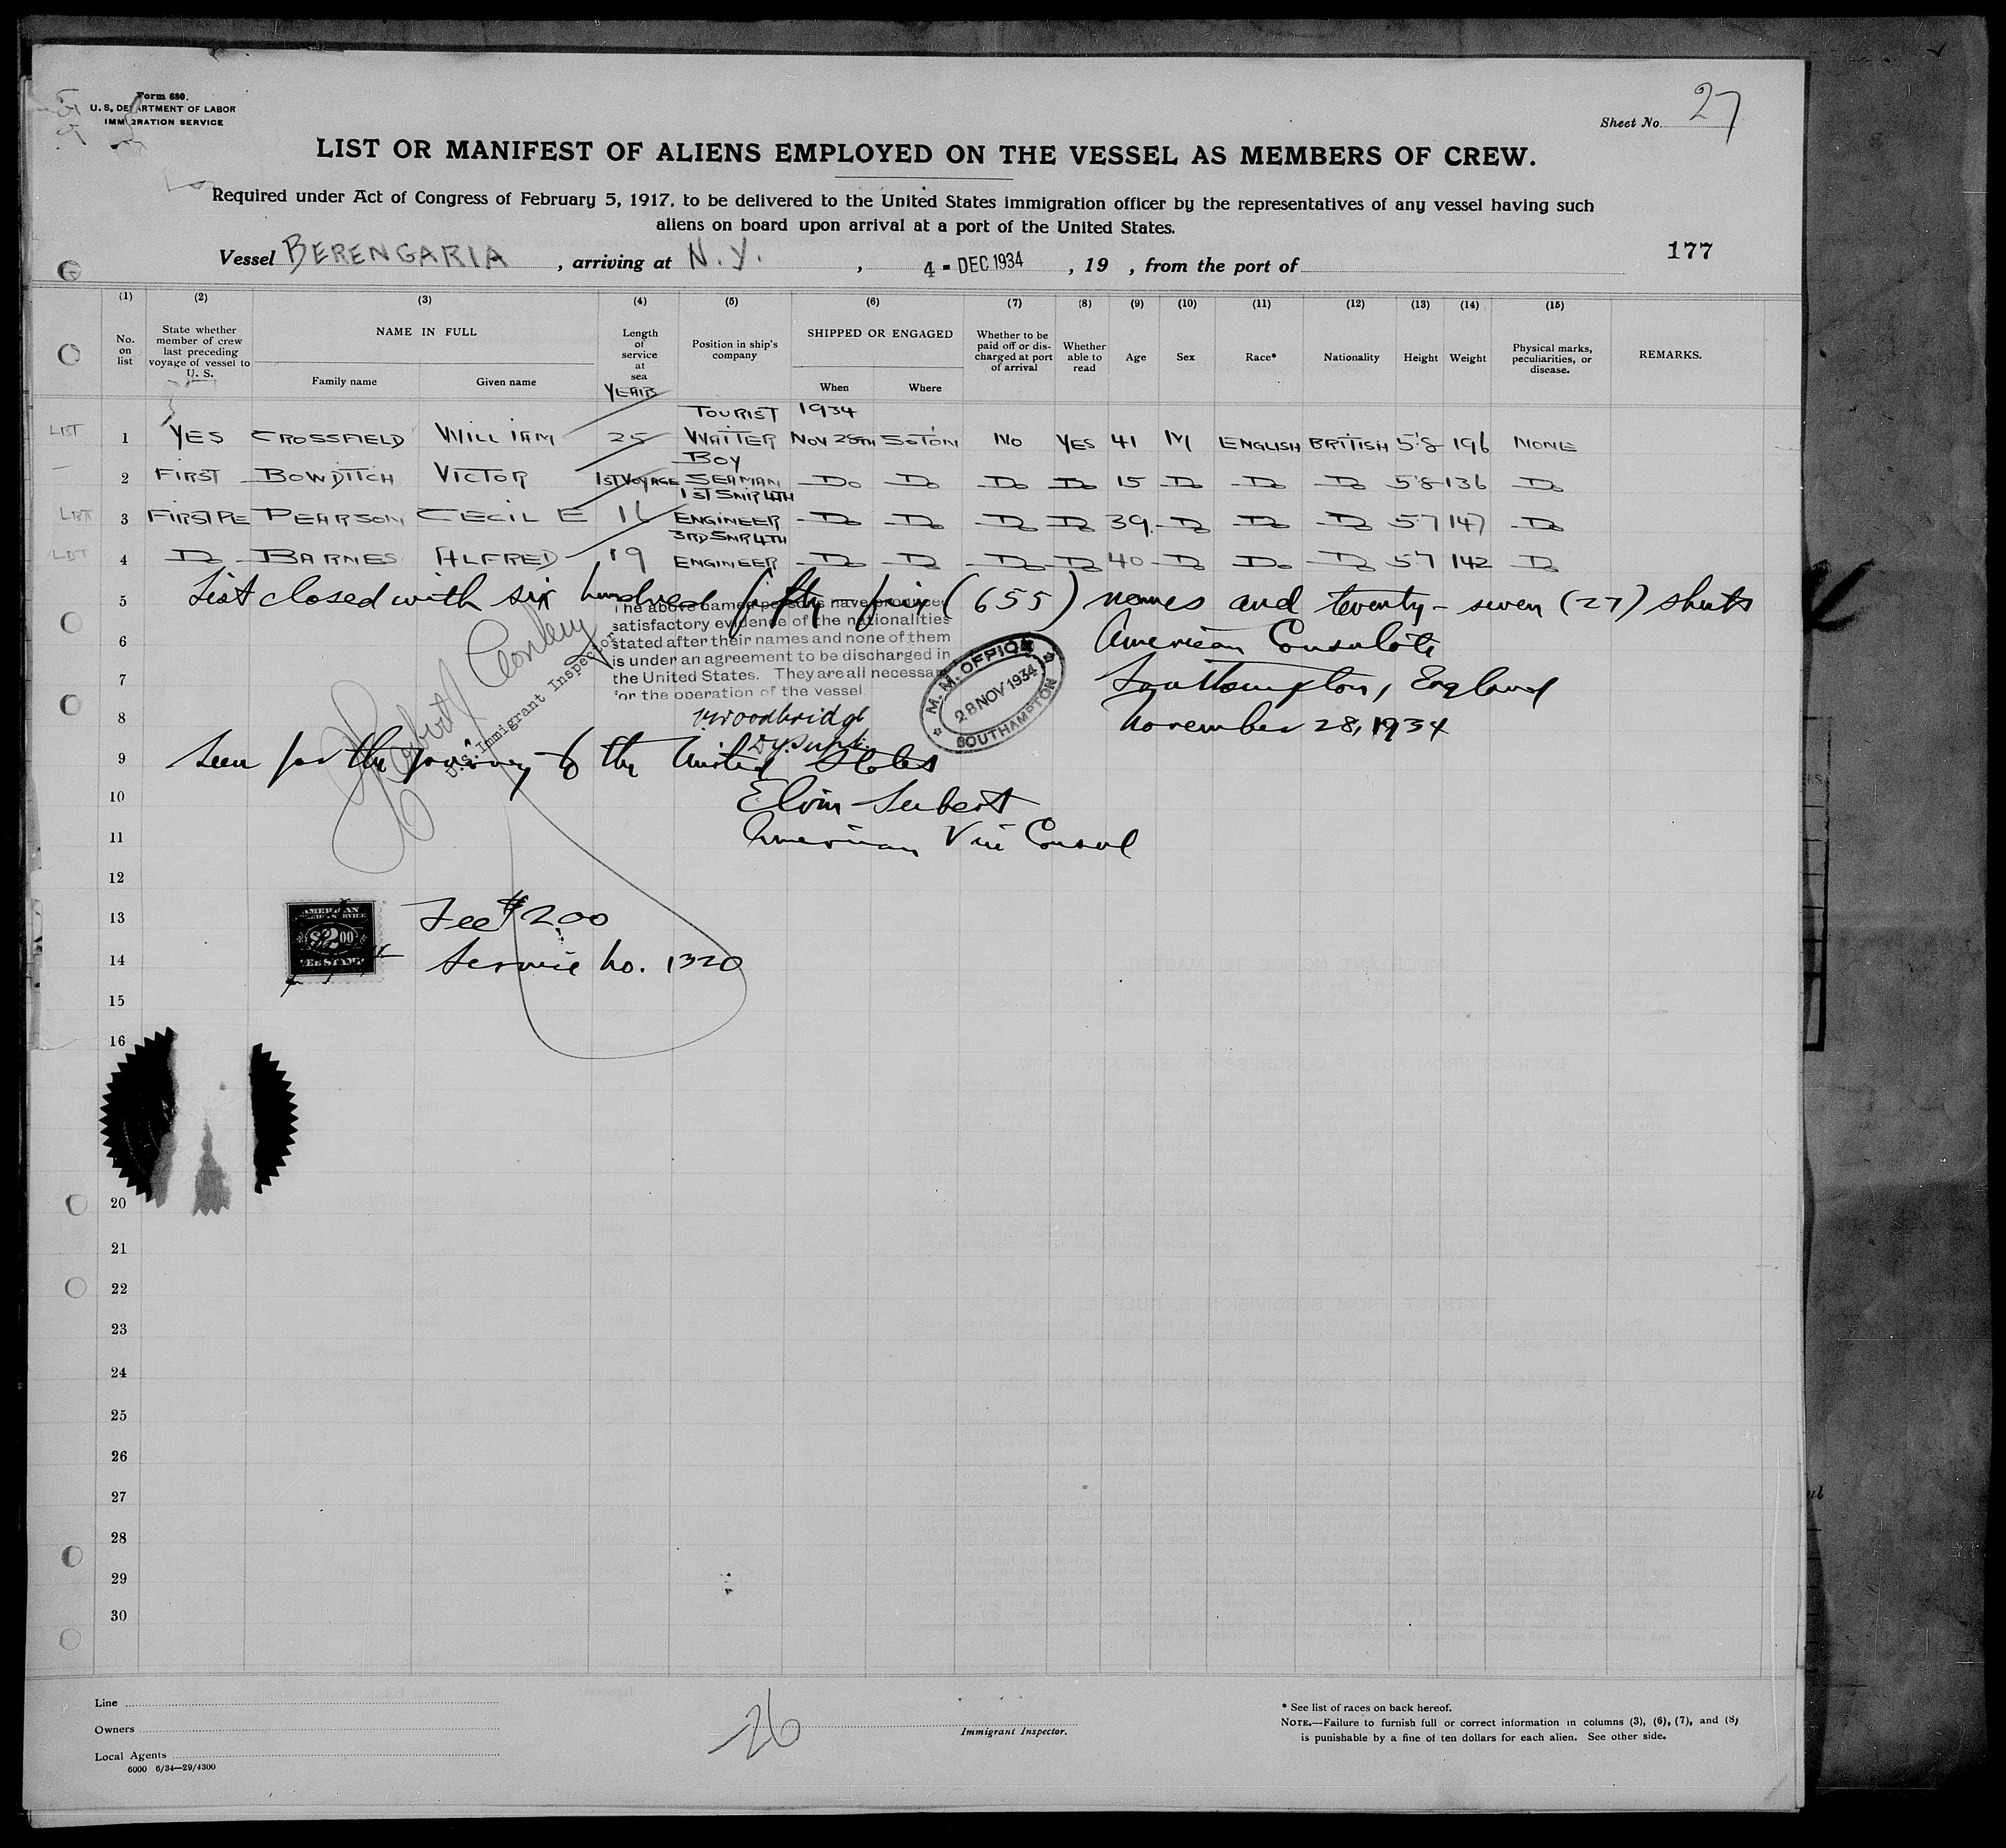 Form 680.
U. S. DEPARTMENT OF LABOR
IMMIGRATION SERVICE
Sheet No. 27
LIST OR MANIFEST OF ALIENS EMPLOYED ON THE VESSEL AS MEMBERS OF CREW.
Required under Act of Congress of February 5, 1917, to be delivered to the United States immigration officer by the representatives of any vessel having such
aliens on board upon arrival at a port of the United States.
177
Vessel BERENGARIA , arriving at N.Y. , 4 - DEC 1934 , 19 , from the port of
(1) (2) (3) (4) (5) (6) (7) (8) (9) (10) (11) (12) (13) (14) (15)
No. on list State whether member of crew last preceding voyage of vessel to U. S. NAME IN FULL Family name Given name Length of service at sea Position in ship's company SHIPPED OR ENGAGED When Where Whether to be paid off or discharged at port of arrival Whether able to read Age Sex Race* Nationality Height Weight Physical marks, peculiarities, or disease. REMARKS.
YEARS
TOURIST 1934
LIST 1 YES CROSSFIELD WILLIAM 25 WAITER NOV 28TH SOTON NO YES 41 M ENGLISH BRITISH 5'8 196 NONE
BOY
2 FIRST BOWDITCH VICTOR 1ST VOYAGE SEAMAN Do Do Do Do 15 Do Do Do 5'8 136 Do
1ST SNR 4TH
LIST 3 FIRST RE PEARSON CECIL E 16 ENGINEER Do Do Do Do 39 Do Do Do 5'7 147 Do
3RD SNR 4TH
LIST 4 Do BARNES ALFRED 19 ENGINEER Do Do Do Do 40 Do Do Do 5'7 142 Do
5 List closed with six hundred fifty-five (655) names and twenty-seven (27) sheets
The above named persons have produced
satisfactory evidence of the nationalities
stated after their names and none of them
is under an agreement to be discharged in
the United States. They are all necessary
for the operation of the vessel.
Woodbridge
Dy. Supt.
U.S. Immigrant Inspector
M. M. OFFICE
28 NOV 1934
SOUTHAMPTON
6 American Consulate
7 Southampton, England
8 November 28, 1934
9 Seen for the journey to the United States
10 Elvin Seibert
11 American Vice Consul
12
AMERICAN
FOREIGN SERVICE
$2.00
FEE STAMP
13 Fee $2.00
14 Service No. 1320
15
16
20
21
22
23
24
25
26
27
28
29
30
Line
Owners
Local Agents
6000 6/34—29/4300
26
Immigrant Inspector.
* See list of races on back hereof.
NOTE.—Failure to furnish full or correct information in columns (3), (6), (7), and (8)
is punishable by a fine of ten dollars for each alien. See other side.